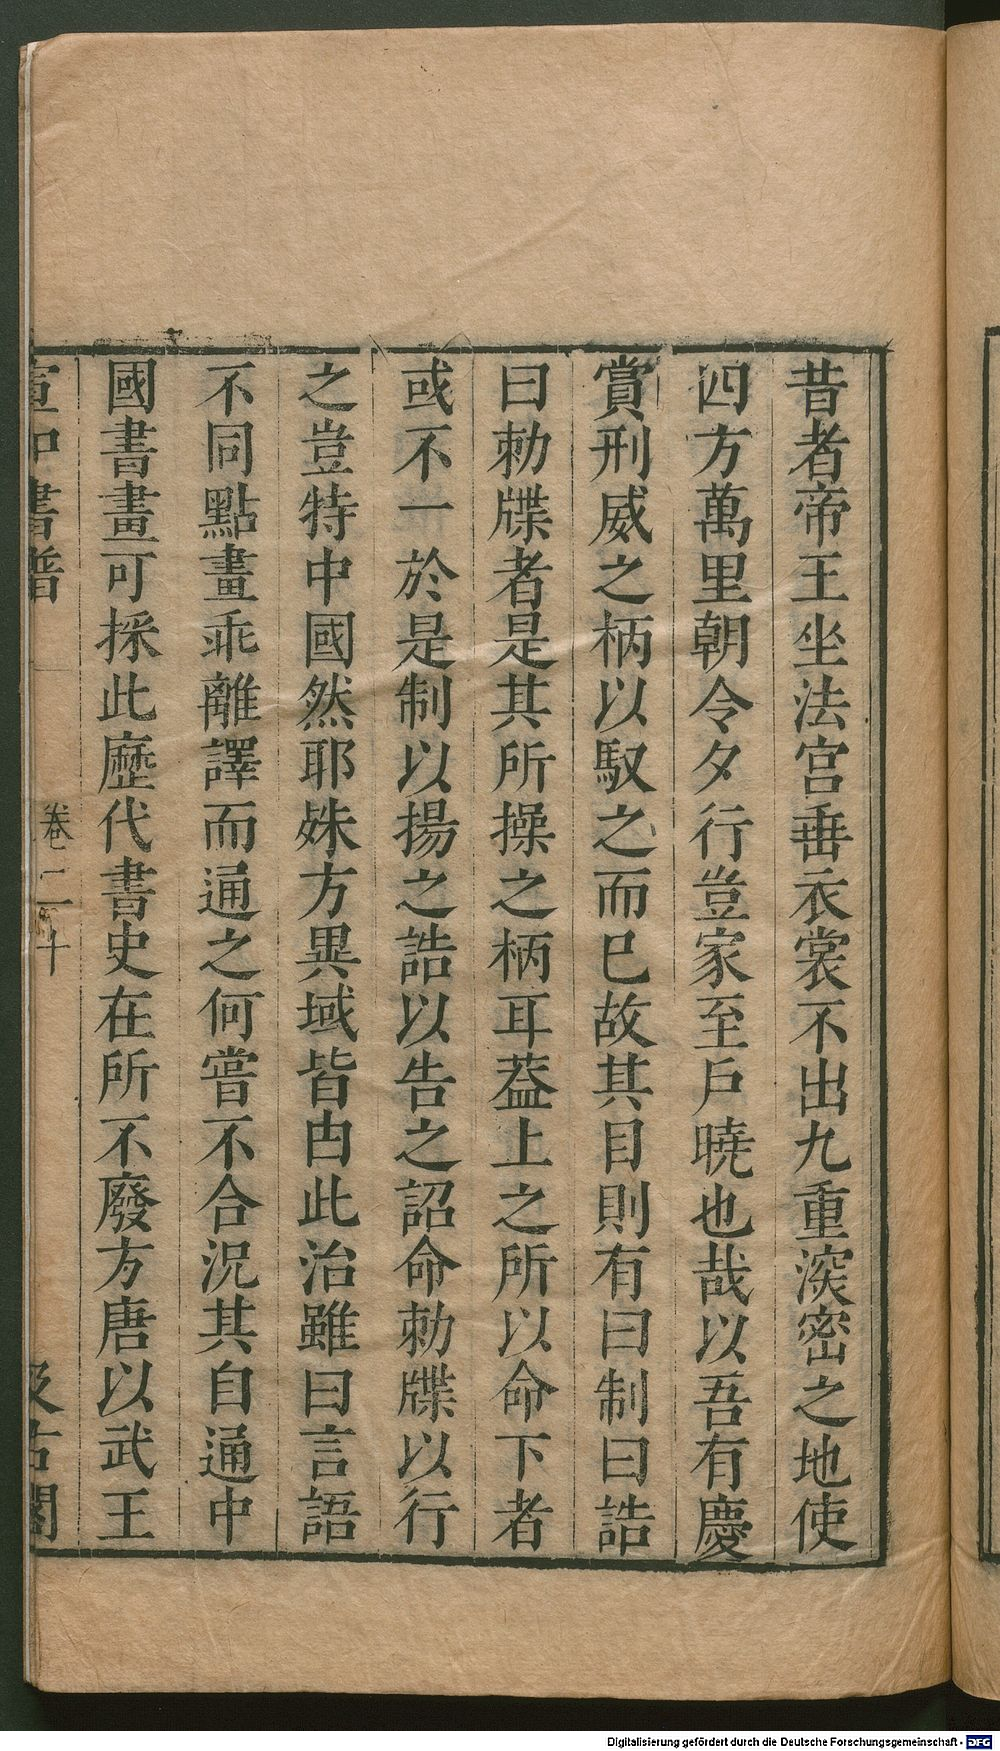 昔者帝王坐法宫垂衣裳不出九重深密之地使
四方萬里朝令夕行豈家至戶曉也哉以吾有慶
賞刑威之柄以馭之而已故其目則有曰制曰誥
曰勑牒者是其所操之柄耳葢上之所以命下者
或不一於是制以揚之誥以告之詔命勑牒以行
之豈特中國然耶殊方異域皆由此治雖曰言語
不同點畫乖離譯而通之何嘗不合況其自通中
國書畫可採此歷代書史在所不廢方唐以武王
宣和書譜
卷二十
汲古閣
Digitalisierung gefördert durch die Deutsche Forschungsgemeinschaft - DFG